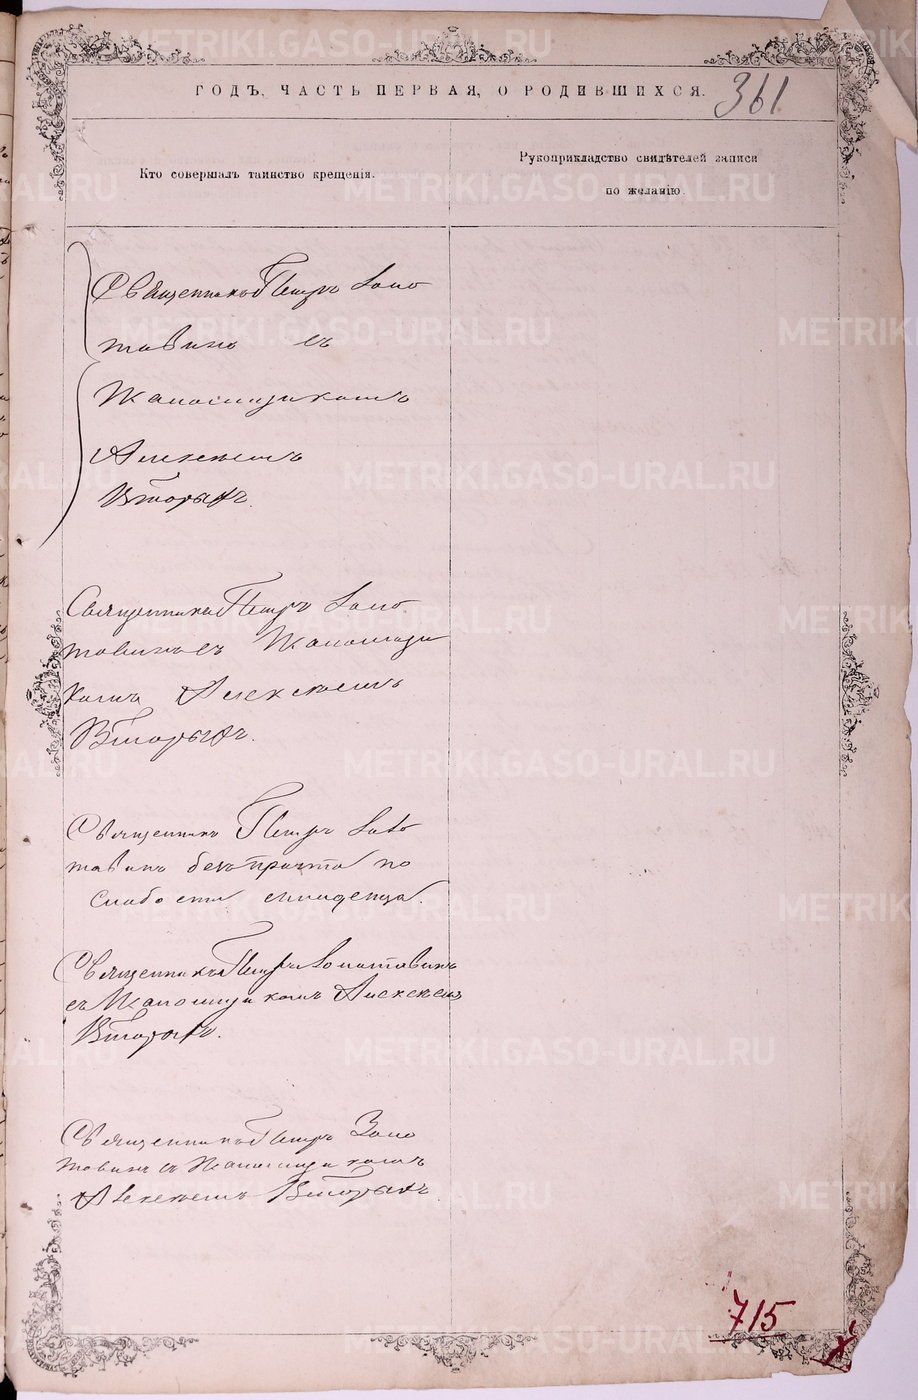 ГОДЪ, ЧАСТЬ ПЕРВАЯ, О РОДИВШИХСЯ.
361
Кто совершалъ таинство крещенія.
Рукоприкладство свидѣтелей записи
по желанію.
Священникъ Петръ Золо
тавинъ съ
Псаломщикомъ
Алексѣемъ
Вторыхъ.
Священникъ Петръ Золо
тавинъ съ Псаломщи
комъ Алексѣемъ
Вторыхъ.
Священникъ Петръ Золо
тавинъ безъ причта по
слабости младенца.
Священникъ Петръ Золотавинъ
съ Псаломщикомъ Алексѣемъ
Вторыхъ.
Священникъ Петръ Золо
тавинъ съ Псаломщикомъ
Алексѣемъ Вторыхъ.
715
METRIKI.GASO-URAL.RU